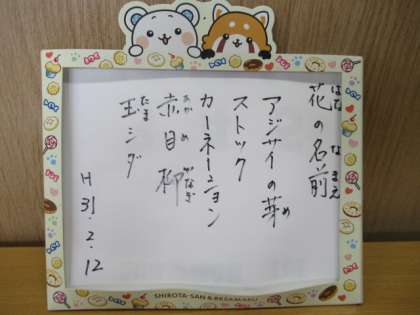 花の名前
はな なまえ
アジサイの芽
め
ストック
カーネーション
赤目柳
あか め やなぎ
玉シダ
たま
H31.2.12
SHIROTA-SAN &